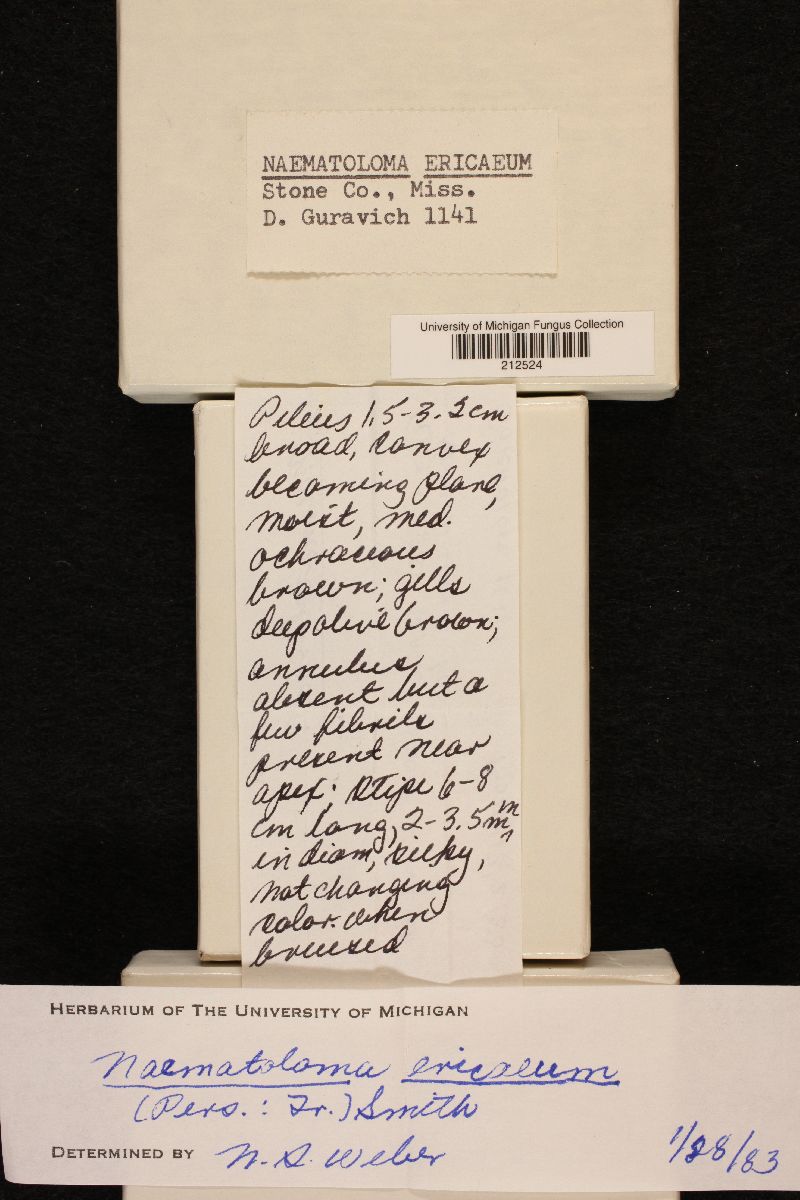 NAEMATOLOMA ERICAEUM
Stone Co., Miss.
D. Guravich 1141
University of Michigan Fungus Collection
212524
Pileus 1.5-3.2cm
broad, convex
becoming plane,
moist, med.
ochraceous
brown; gills
deep olive brown;
annulus
absent but a
few fibrils
present near
apex; stipe 6-8
cm long, 2-3.5mm
in diam, silky,
not changing
color when
bruised
HERBARIUM OF THE UNIVERSITY OF MICHIGAN
Naematoloma ericaeum
(Pers.: Fr.) Smith
DETERMINED BY N. S. Weber 1/28/83